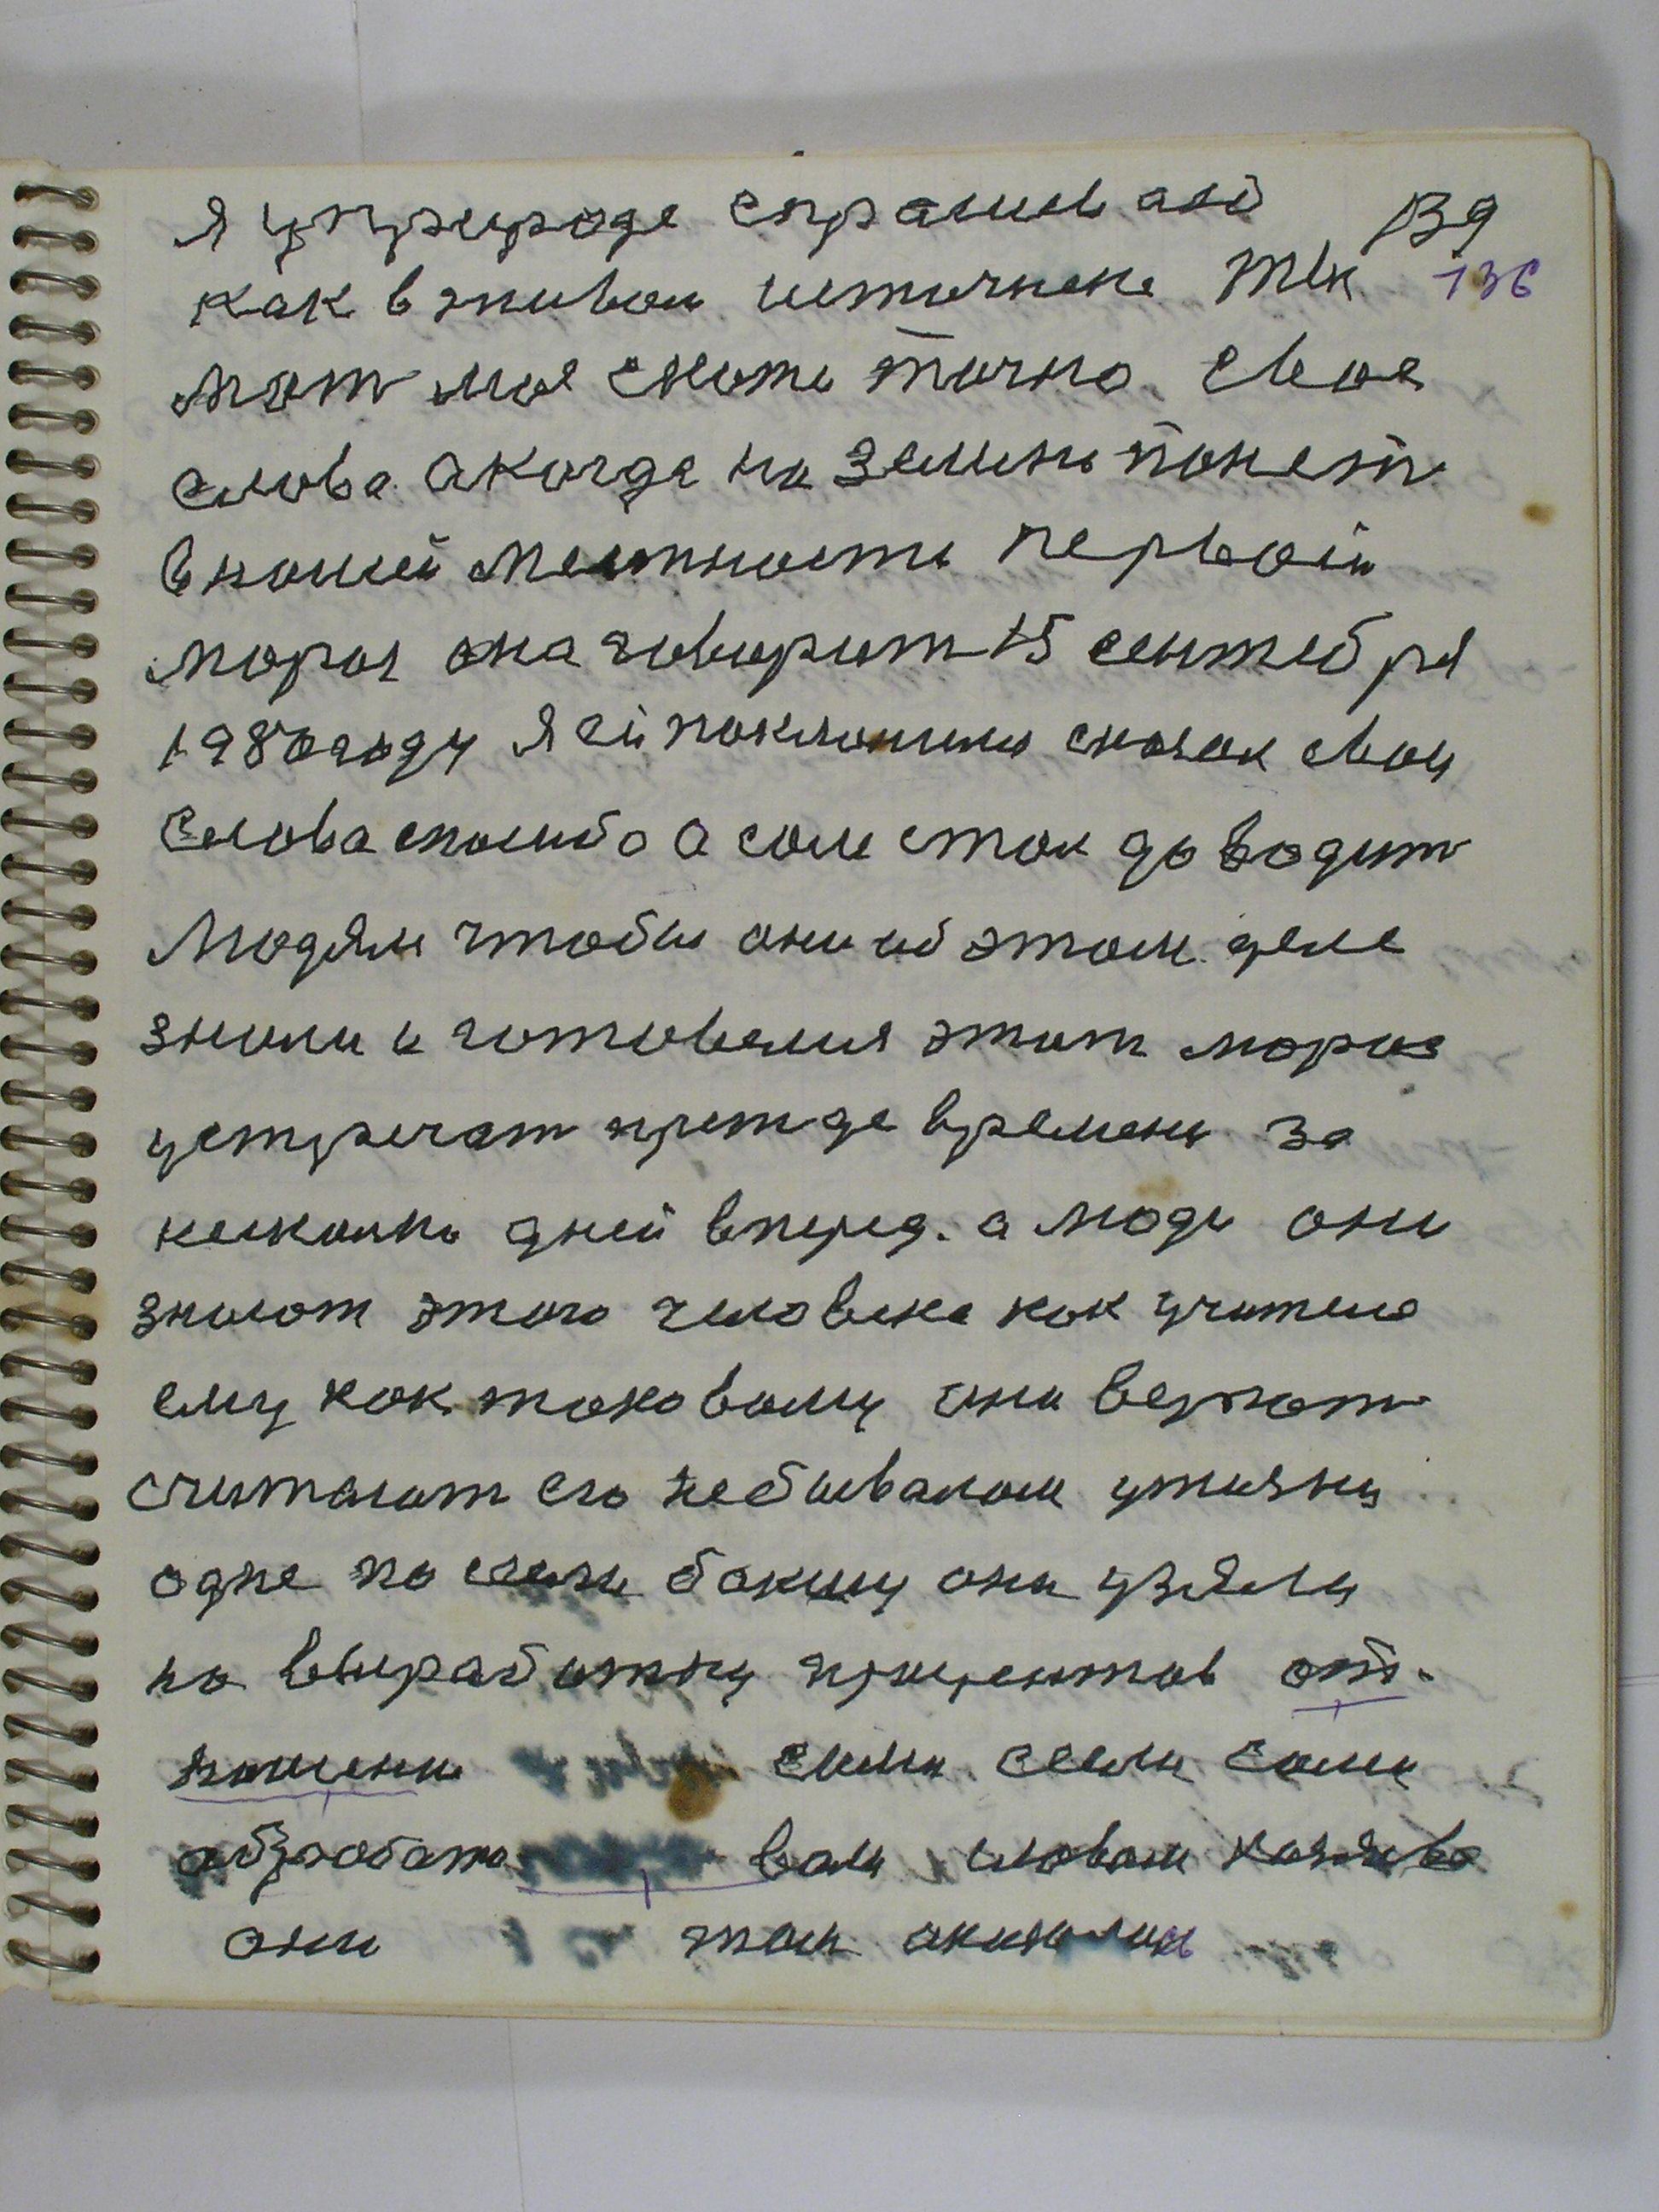 я у природе спрашиваю 139
как в живом источнеке ты ж 136
мат моя скажи точно свое
слова а когда на землю понет
в нашей местности первой
мороз она говорит 15 сентебря
1980 году я ей поклонился сказал свои
слова спасибо а сам стал доводит
людям чтобы они об этом деле
знали и готовелися этот мороз
устречат прежде времени за
несколко дней вперед. а люди они
знают этого человека как учителя
ему как таковому они верют
считают его небывалом
одне по они узяли
на выработку процентов от-
сами сеели сами
обработа вали словом хозяева
они там